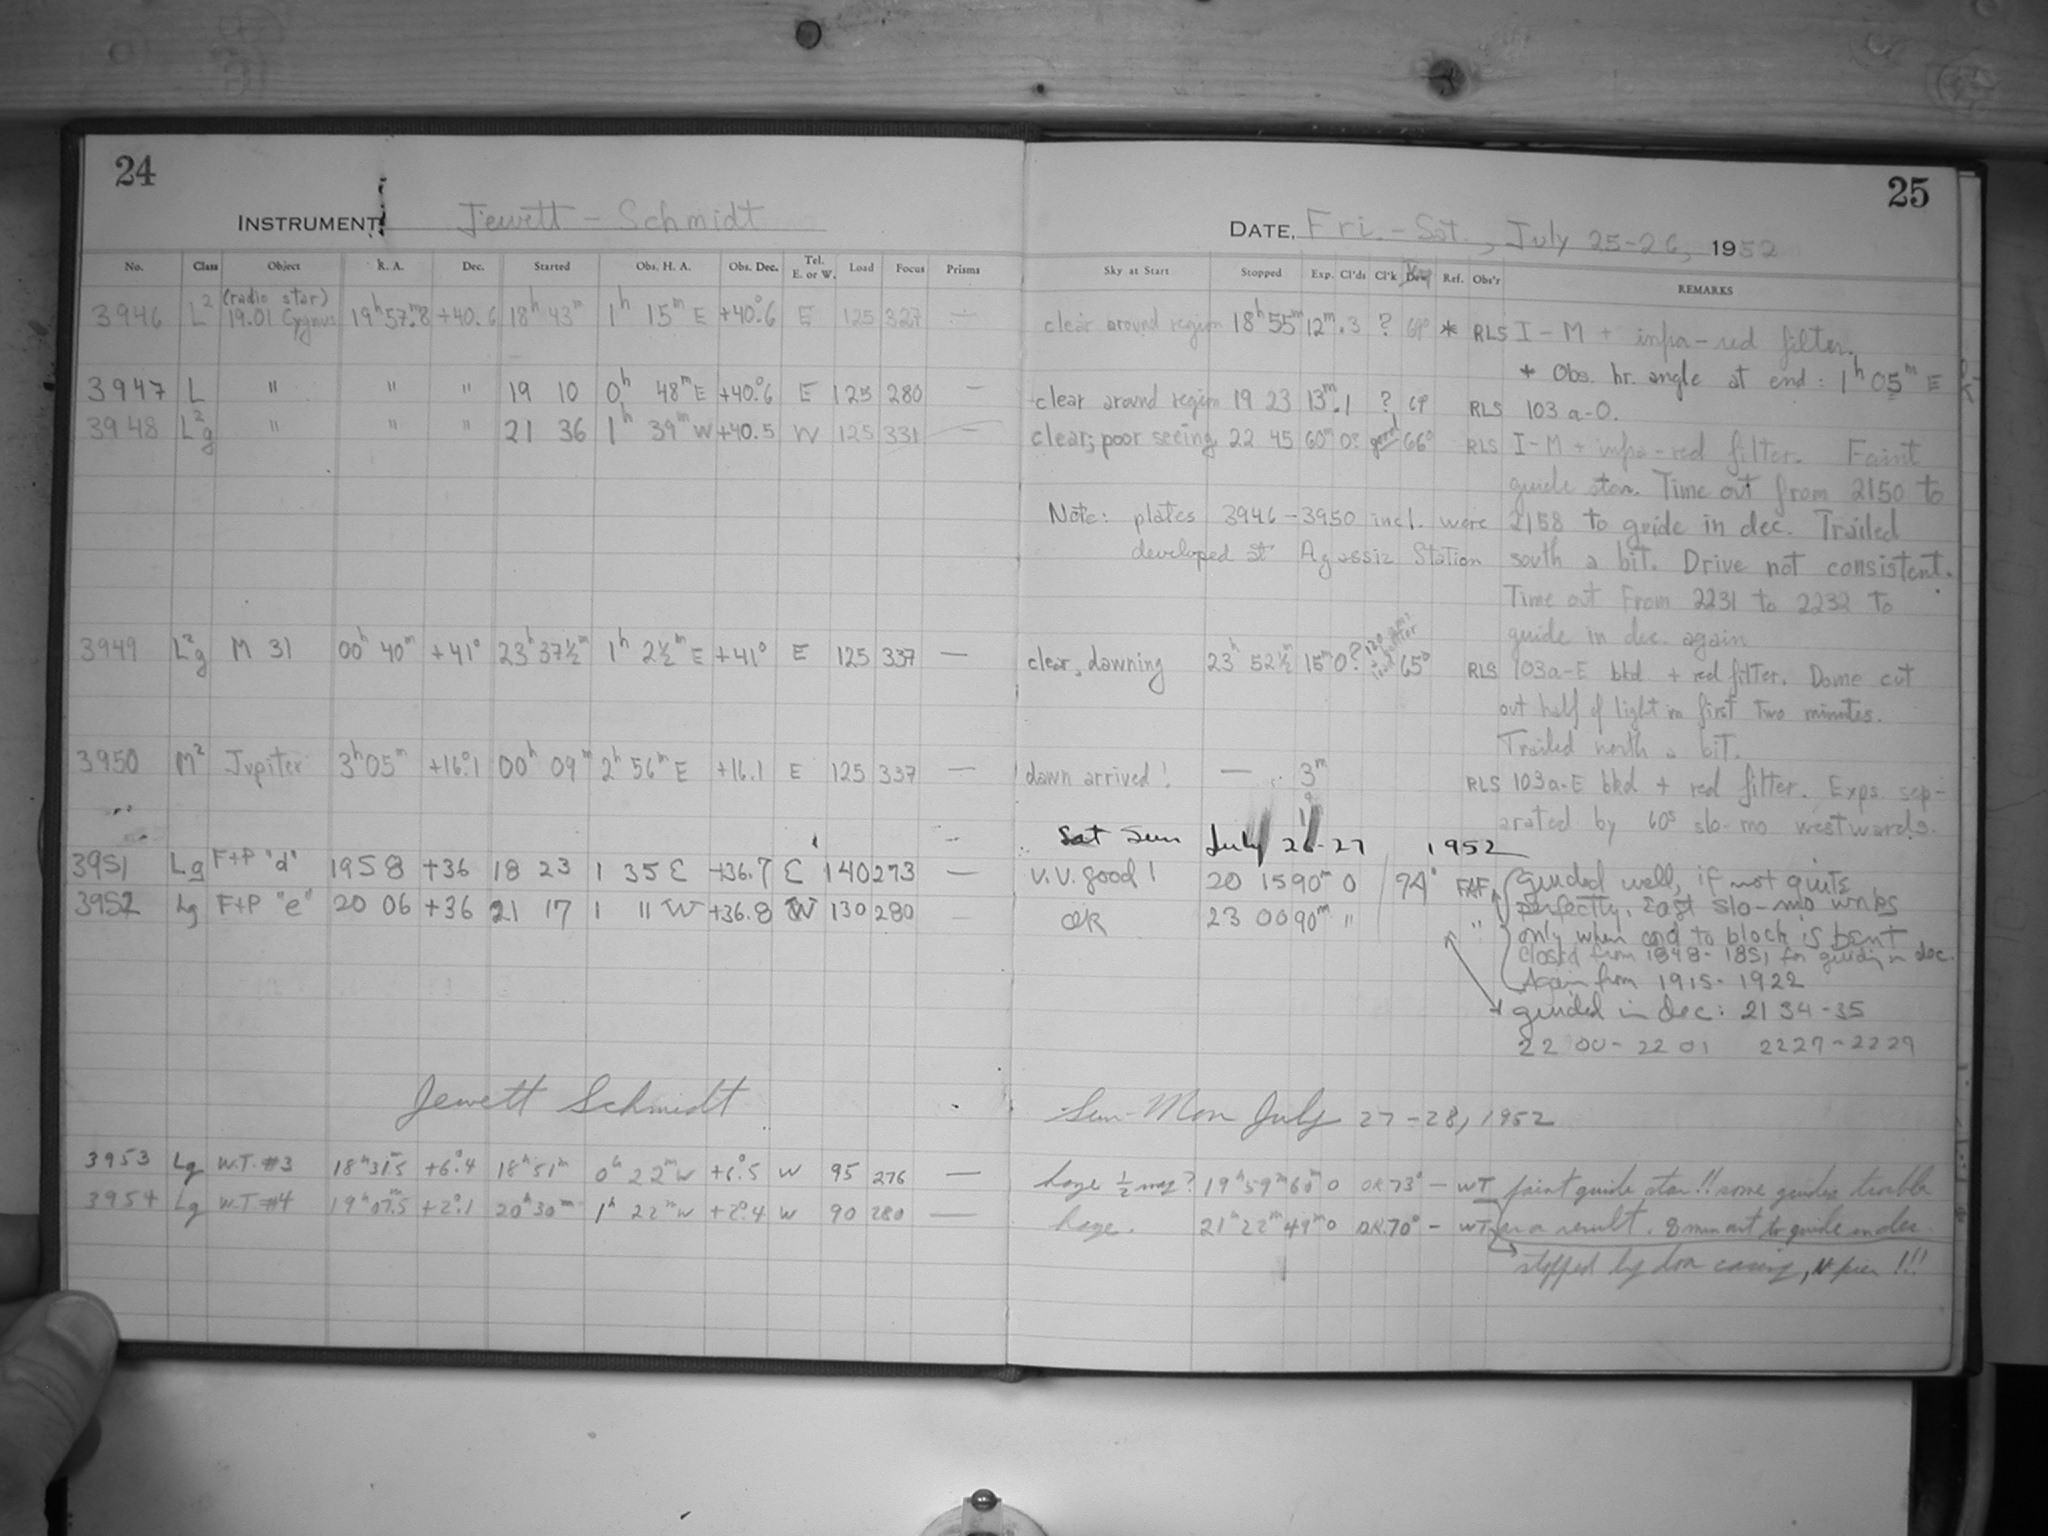 24
INSTRUMENT Jewett - Schmidt
No. Class Object R. A. Dec. Started Obs. H. A. Obs. Dec. Tel. E. or W. Load Focus Prisms
3946 L² (radio star) 19.01 Cygnus 19ʰ57.ᵐ8 +40.6 18ʰ 43ᵐ 1ʰ 15ᵐ E +40°.6 E 125 327 —
3947 L " " " 19 10 0ʰ 48ᵐ E +40°.6 E 125 280 —
3948 L²g " " " 21 36 1ʰ 39ᵐ W +40.5 W 125 331 —
3949 L²g M 31 00ʰ 40ᵐ +41° 23ʰ 37½ᵐ 1ʰ 2½ᵐ E +41° E 125 337 —
3950 M² Jupiter 3ʰ05ᵐ +16°.1 00ʰ 09ᵐ 2ʰ 56ᵐ E +16.1 E 125 337 —
3951 Lg F+P "d" 19 58 +36 18 23 1 35 E +36.7 E 140 273 —
3952 Lg F+P "e" 20 06 +36 21 17 1 11 W +36.8 W 130 280 —
Jewett Schmidt
3953 Lg W.T. #3 18ʰ31ᵐ.5 +6°.4 18ʰ51ᵐ 0ʰ 22ᵐ W +6°.5 W 95 276 —
3954 Lg W.T. #4 19ʰ07ᵐ.5 +2°.1 20ʰ30ᵐ 1ʰ 22ᵐ W +2°.4 W 90 280 —
25
DATE, Fri. - Sat., July 25-26, 1952
Sky at Start Stopped Exp. Cl'ds Cl'k Ref. Obs'r REMARKS
clear around region 18ʰ55ᵐ 12ᵐ .3 ? 69° * RLS I-M + infra-red filter.
* Obs. hr. angle at end: 1ʰ 05ᵐ E
clear around region 19 23 13ᵐ .1 ? 69 RLS 103 a-O.
clear; poor seeing 22 45 60ᵐ 0? good 66° RLS I-M + infra-red filter. Faint
guide star. Time out from 2150 to
Note: plates 3946-3950 incl. were
2158 to guide in dec. Trailed
developed at Agassiz Station
south a bit. Drive not consistent.
Time out From 2231 to 2232 to
guide in dec. again
clear, dawning 23ʰ 52½ᵐ 15ᵐ 0? 65° RLS 103a-E bkd + red filter. Dome cut
out half of light in first two minutes.
Trailed north a bit.
dawn arrived! — 3ᵐ RLS 103a-E bkd + red filter. Exps. sep-
arated by 60ˢ slo-mo westwards.
Sat Sun July 26-27 1952
v.v. good! 20 15 90ᵐ 0 74° FAF guided well, if not quite
perfectly. East slo-mo works
OK 23 00 90ᵐ " "
only when cord to block is bent
closed from 1848-1851 for guiding in dec.
Again from 1915-1922
guided in dec: 21 34-35
22 00-22 01 2227-2229
Sun-Mon July 27-28, 1952
haze ½ mag? 19ʰ59ᵐ 60ᵐ 0 OK 73° - WT faint guide star!! some guiding trouble
haze. 21ʰ22ᵐ 49ᵐ 0 OK 70° - WT as a result. 8 min out to guide in dec.
stopped by casing, N pier !!!